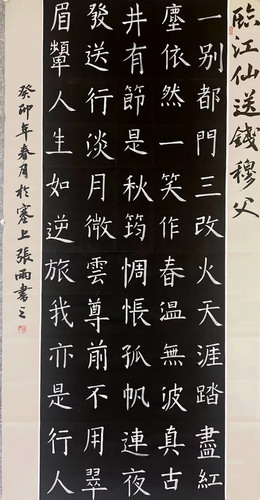 臨江仙送錢穆父
一别都門三改火天涯踏盡紅
塵依然一笑作春温無波真古
井有節是秋筠惆悵孤帆連夜
發送行淡月微雲尊前不用翠
眉顰人生如逆旅我亦是行人
癸卯年春月於塞上張雨書之